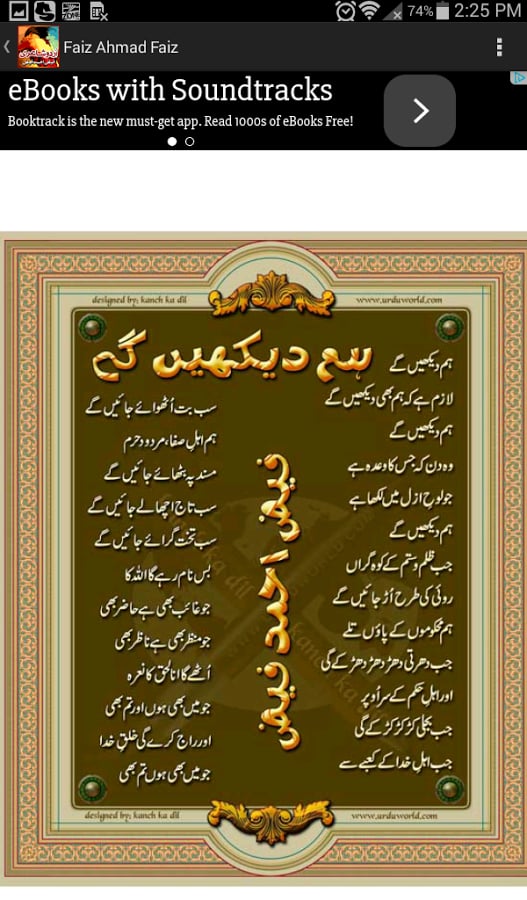 74% 2:25 PM
Faiz Ahmad Faiz
eBooks with Soundtracks
Booktrack is the new must-get app. Read 1000s of eBooks Free!
designed by: kanch ka dil
www.urduworld.com
ہم دیکھیں گے
ہم دیکھیں گے
لازم ہے کہ ہم بھی دیکھیں گے
ہم دیکھیں گے
وہ دن کہ جس کا وعدہ ہے
جو لوحِ ازل میں لکھا ہے
ہم دیکھیں گے
جب ظلم و ستم کے کوہ گراں
روئی کی طرح اُڑ جائیں گے
ہم محکوموں کے پاؤں تلے
جب دھرتی دھڑ دھڑ دھڑکے گی
اور اہلِ حکم کے سر اُوپر
جب بجلی کڑ کڑ کڑکے گی
جب اہلِ خدا کے کعبے سے
سب بت اُٹھوائے جائیں گے
ہم اہلِ صفا، مردودِ حرم
مسند پہ بٹھائے جائیں گے
سب تاج اچھالے جائیں گے
سب تخت گرائے جائیں گے
بس نام رہے گا اللہ کا
جو غائب بھی ہے حاضر بھی
جو منظر بھی ہے ناظر بھی
اُٹھے گا انا الحق کا نعرہ
جو میں بھی ہوں اور تم بھی
اور راج کرے گی خلقِ خدا
جو میں بھی ہوں تم بھی
فیض احمد فیض
designed by: kanch ka dil
www.urduworld.com